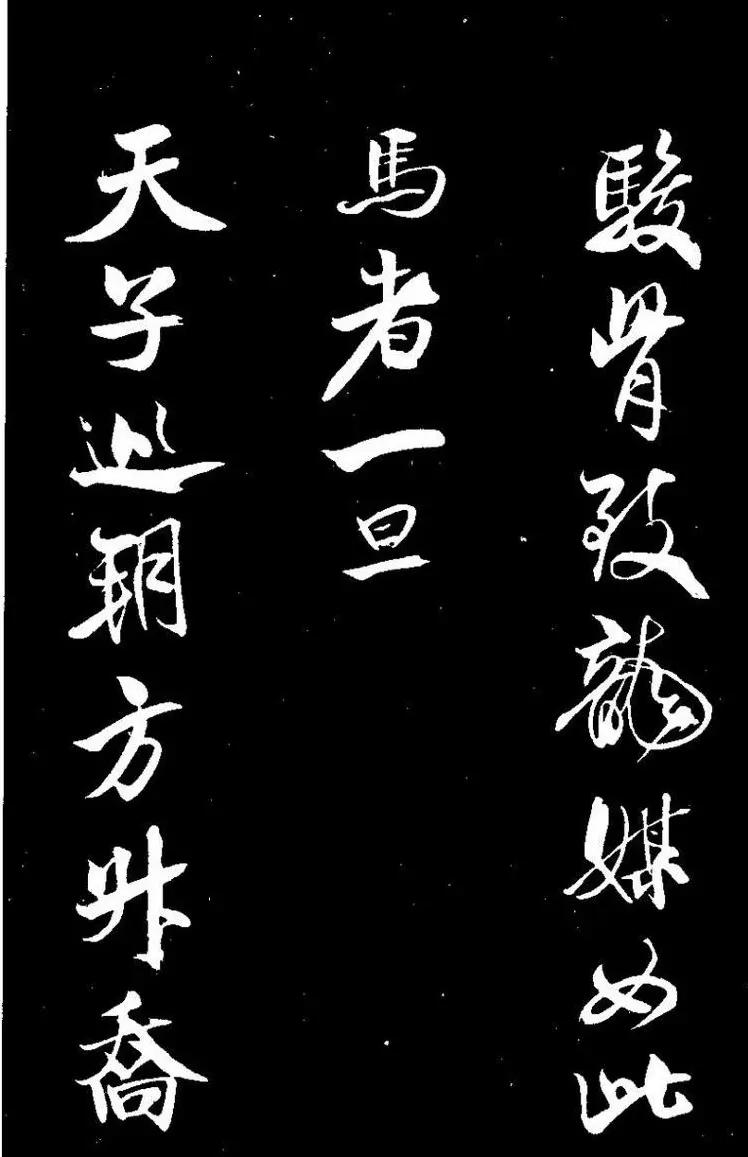 駿骨致龍媒如此
馬者一旦
天子巡朔方升喬